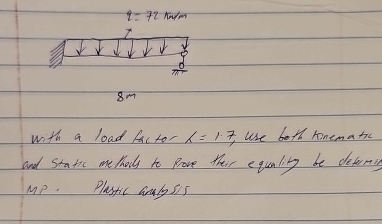 q = 72 kN/m
8m
with a load factor λ = 1.7, use both kinematic
and static methods to prove their equality be determin
MP. Plastic analysis